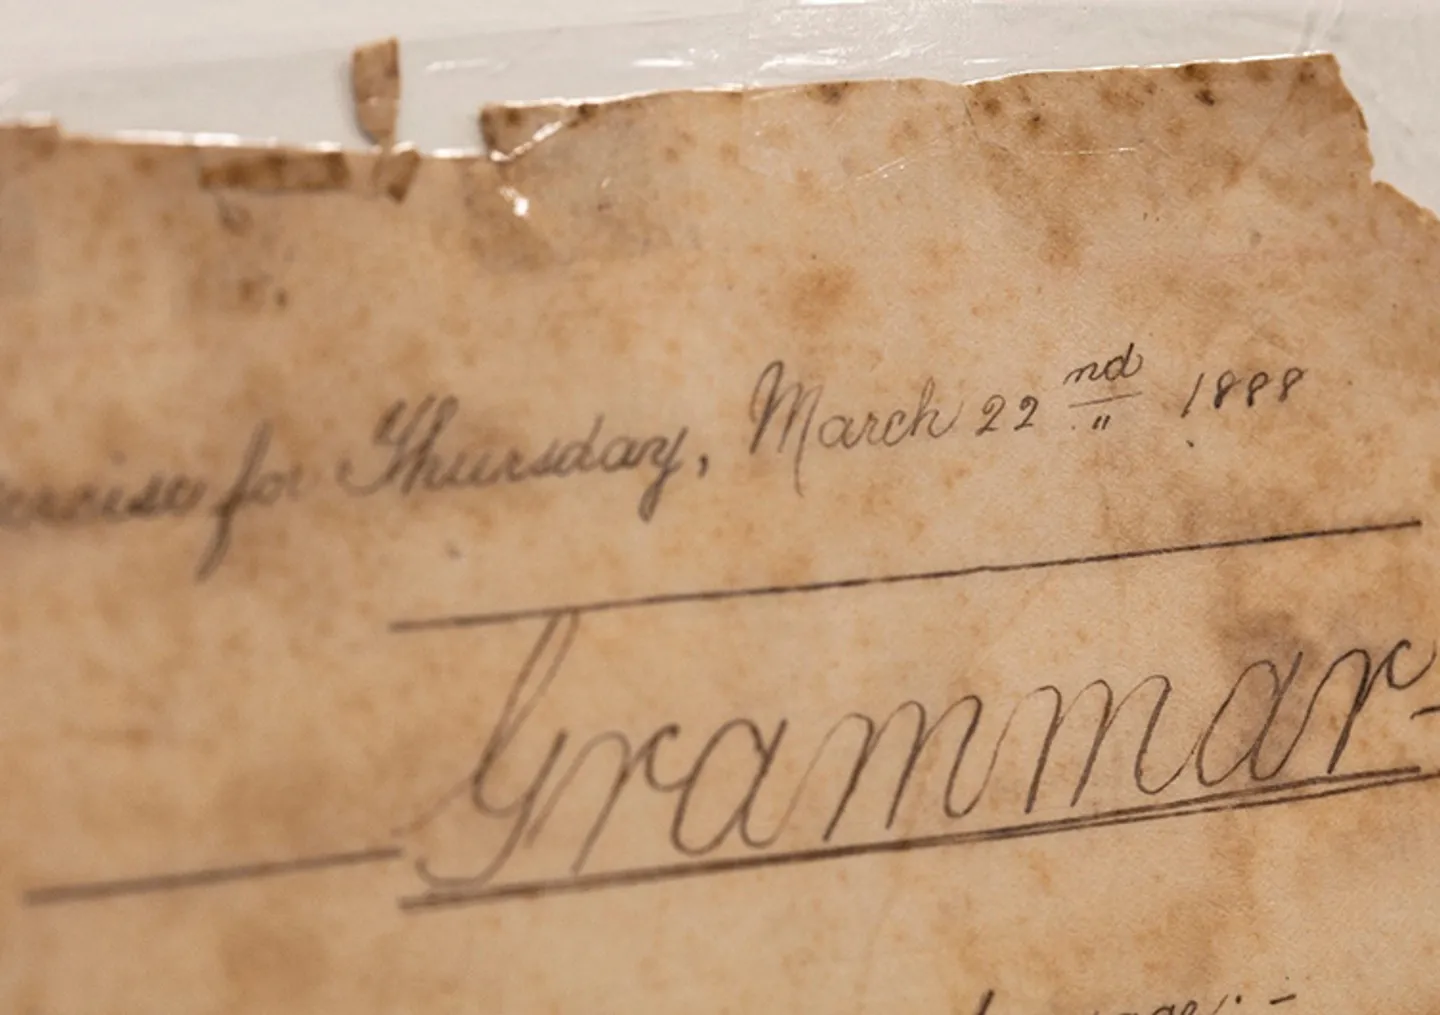 ercise for Thursday, March 22nd 1888
Grammar-